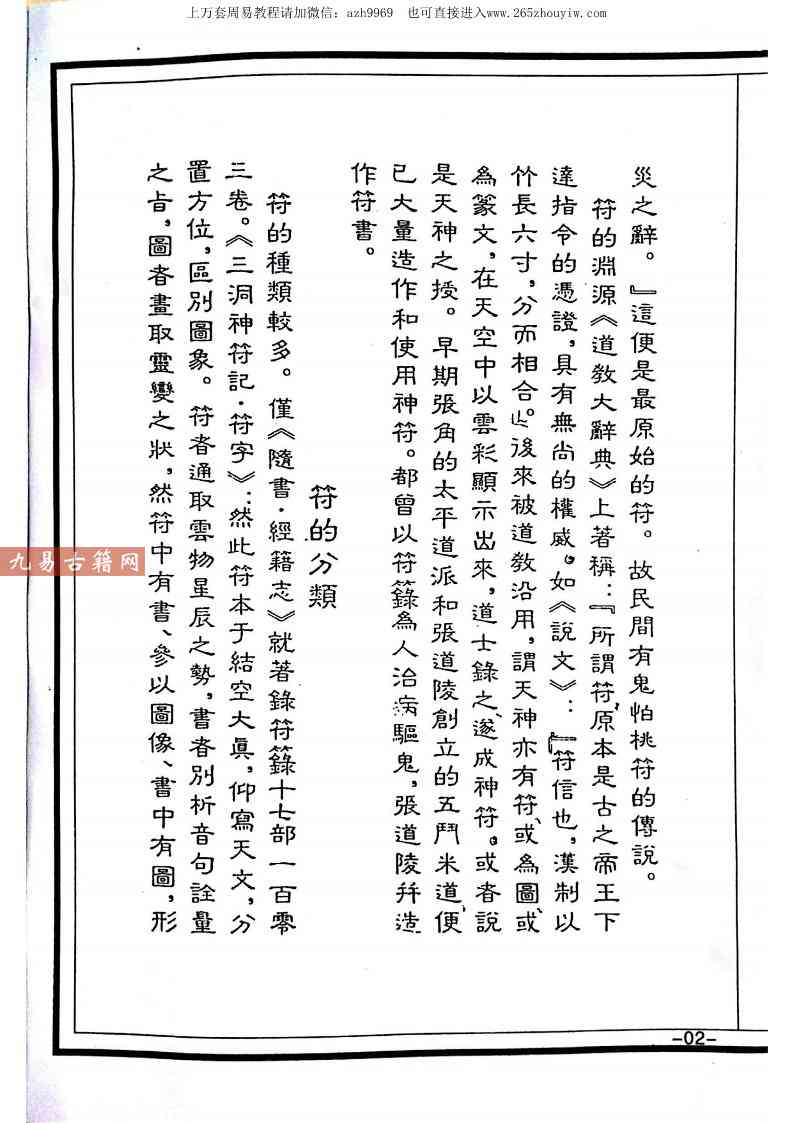 上万套周易教程请加微信：azh9969　也可直接进入www.265zhouyiw.com
災之辭。』這便是最原始的符。故民間有鬼怕桃符的傳說。
符的淵源《道敎大辭典》上著稱：『所謂符、原本是古之帝王下
達指令的憑證，具有無尚的權威。如《說文》：『符信也，漢制以
竹長六寸，分而相合。』後來被道敎沿用，謂天神亦有符、或為圖、或
為篆文，在天空中以雲彩顯示出來，道士錄之、遂成神符。或者說
是天神之授。早期張角的太平道派和張道陵創立的五鬥米道、便
已大量造作和使用神符。都曾以符籙為人治病驅鬼，張道陵幷造
作符書。
符的分類
符的種類較多。僅《隨書·經籍志》就著錄符籙十七部一百零
三卷。《三洞神符記·符字》：然此符本于結空大眞，仰寫天文，分
置方位，區別圖象。符者通取雲物星辰之勢，書者別析音句詮量
之旨，圖者畫取靈變之狀，然符中有書、參以圖像、書中有圖，形
九易古籍网
-02-